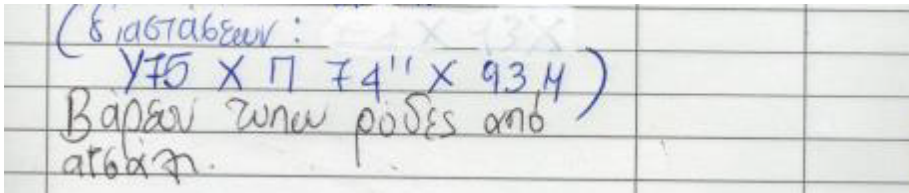 (διαστάσεων:
Υ75 Χ Π 74'' Χ 93 Μ)
Βάρεων τύπου ρόδες από
ατσάλι.